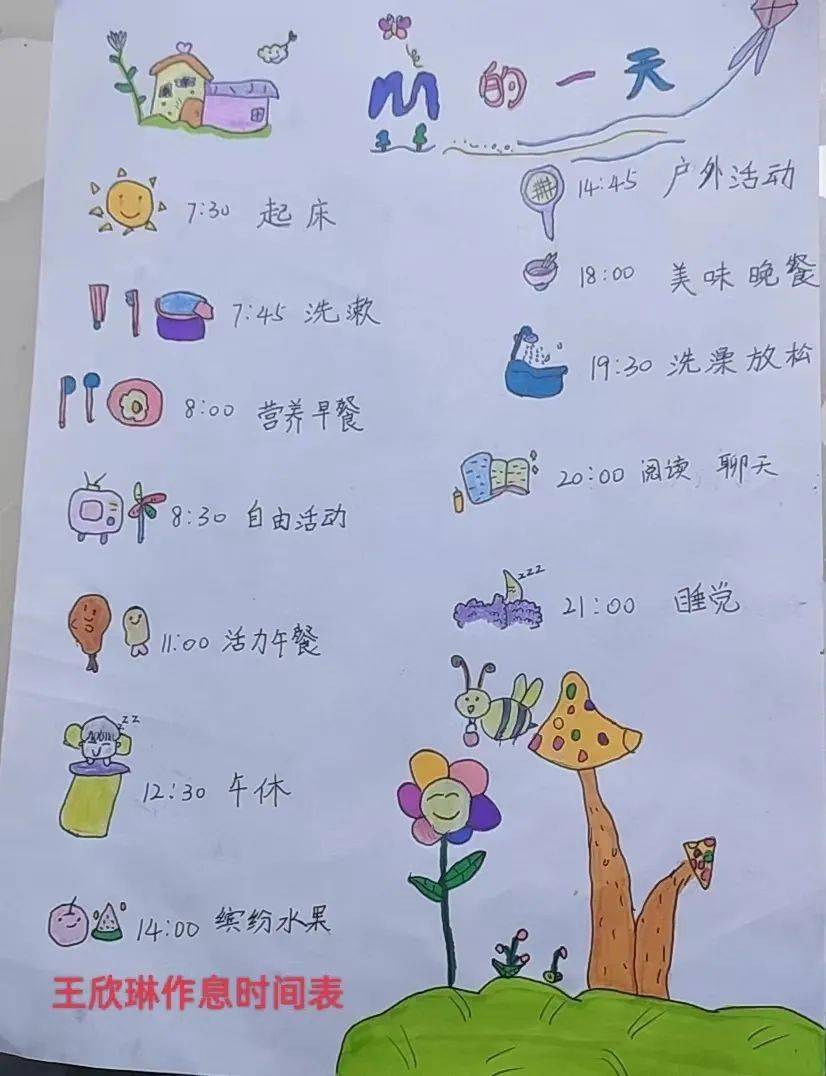 的一天
7:30 起床
7:45 洗漱
8:00 营养早餐
8:30 自由活动
11:00 活力午餐
12:30 午休
14:00 缤纷水果
14:45 户外活动
18:00 美味晚餐
19:30 洗澡放松
20:00 阅读, 聊天
zzz
21:00 睡觉
zz
王欣琳作息时间表